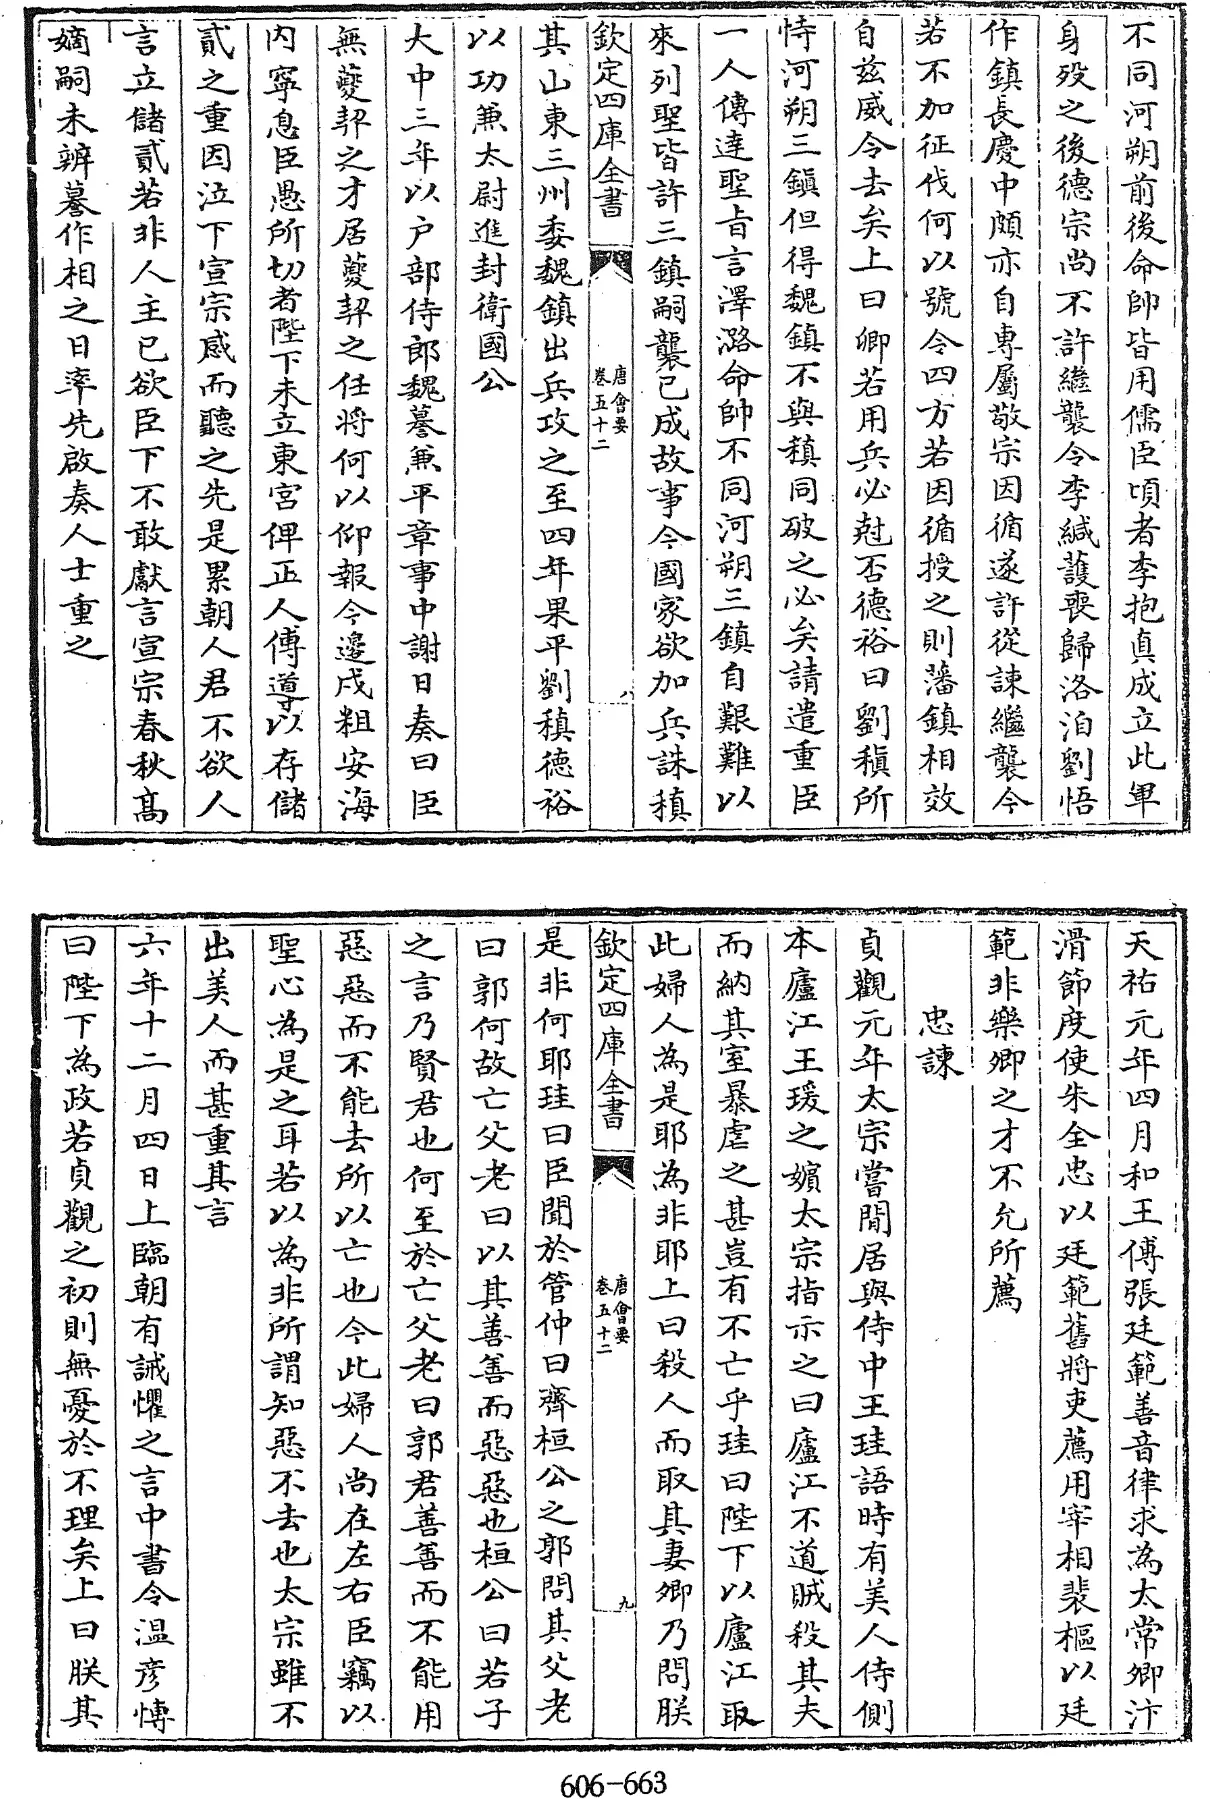 不同河朔前後命帥皆用儒臣頃者李抱真成立此軍
身歿之後德宗尚不許繼襲令李緘護喪歸洛洎劉悟
作鎮長慶中頗亦自專屬敬宗因循遂許從諫繼襲今
若不加征伐何以號令四方若因循授之則藩鎮相效
自兹威令去矣上曰卿若用兵必尅否德裕曰劉稹所
恃河朔三鎮但得魏鎮不與稹同破之必矣請遣重臣
一人傳達聖旨言澤潞命帥不同河朔三鎮自艱難以
來列聖皆許三鎮嗣襲已成故事今國家欲加兵誅稹
欽定四庫全書
唐會要
卷五十二
八
其山東三州委魏鎮出兵攻之至四年果平劉稹德裕
以功兼太尉進封衛國公
大中三年以户部侍郎魏謩兼平章事中謝日奏曰臣
無夔契之才居夔契之任將何以仰報今邊戍粗安海
内寧息臣愚所切者陛下未立東宮俾正人傅導以存儲
貳之重因泣下宣宗感而聽之先是累朝人君不欲人
言立儲貳若非人主已欲臣下不敢獻言宣宗春秋髙
嫡嗣未辨謩作相之日率先啟奏人士重之
天祐元年四月和王傅張廷範善音律求為太常卿汴
滑節度使朱全忠以廷範舊將吏薦用宰相裴樞以廷
範非樂卿之才不允所薦
忠諫
貞觀元年太宗嘗閒居與侍中王珪語時有美人侍側
本廬江王瑗之嬪太宗指示之曰廬江不道賊殺其夫
而納其室暴虐之甚豈有不亡乎珪曰陛下以廬江取
此婦人為是耶為非耶上曰殺人而取其妻卿乃問朕
欽定四庫全書
唐會要
卷五十二
九
是非何耶珪曰臣聞於管仲曰齊桓公之郭問其父老
曰郭何故亡父老曰以其善善而惡惡也桓公曰若子
之言乃賢君也何至於亡父老曰郭君善善而不能用
惡惡而不能去所以亡也今此婦人尚在左右臣竊以
聖心為是之耳若以為非所謂知惡不去也太宗雖不
出美人而甚重其言
六年十二月四日上臨朝有誡懼之言中書令温彦愽
曰陛下為政若貞觀之初則無憂於不理矣上曰朕其
606-663